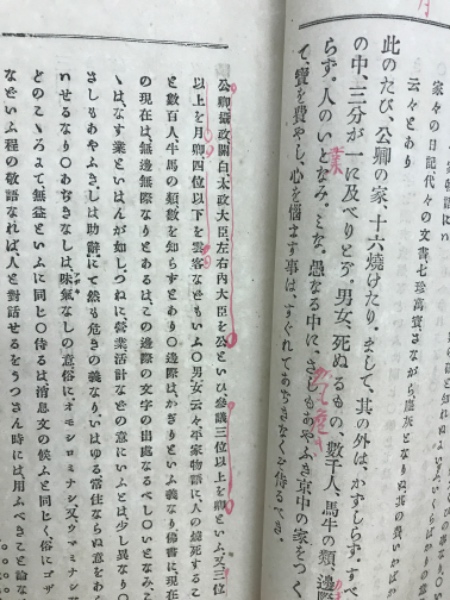 家々の日記、代々の文書、七珍萬寳さながら灰燼となりぬ其の費いかばか
云々とあり
此のたび、公卿の家、十六燒けたり。まして、其の外は、かずしらず。すべ
の中、三分が一に及べりとぞ。男女、死ぬるもの、數千人、馬牛の類、邊際
らず。人のいとなみ。みな。愚なる中に、さしもあやふき京中の家をつく
て、寳を費やし、心を惱ます事は、すぐれてあぢきなくぞ侍るべき。
公卿、攝政關白太政大臣、左右内大臣を公といひ參議三位以上を卿といふ又三位
以上を月卿四位以下を雲客などもいふ〇男女云々平家物語に、人の燒死するこ
と數百人牛馬の類數を知らずとあり〇邊際は、かぎりといふ義なり佛書に、現在
の現在は、無邊無際なりとあるは、この邊際の文字の出處なるべし〇いとなみこ
ゝは、なす業といはんが如し、つねに、營業活計などの意にいふとは少し異なり〇
さしもあやふき、しは助辭にて然も危きの義なり、いはゆる常住ならぬ意をあ
いせるなり〇あぢきなしは、味氣なしの意、俗に、オモシロミナシ、又ウマミナシ
どのこゝろよて、無益といふに同じ〇侍るは、消息文の候ふと同じく、俗にゴザ
などいふ程の敬語なれば、人と對話せるをうつさん時には、用ふべきこと論な